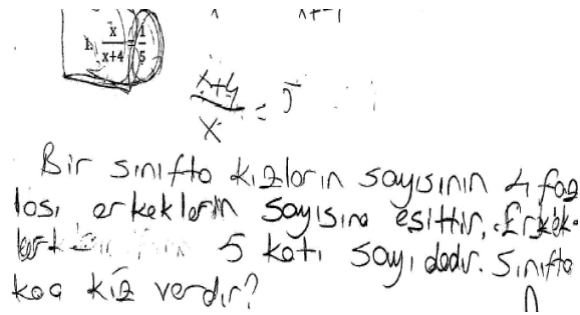 b. x/x+4 = 1/5
x+4/x = 5
Bir sınıfta kızların sayısının 4 faz
lası erkeklerin sayısına eşittir. Erkek-
ler 5 katı sayıdadır. Sınıfta
kaç kız vardır?